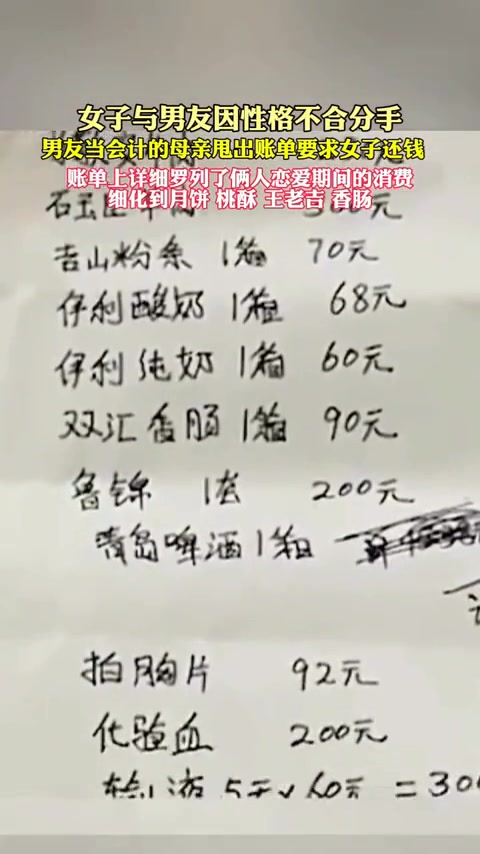 女子与男友因性格不合分手
男友当会计的母亲甩出账单要求女子还钱
账单上详细罗列了俩人恋爱期间的消费
细化到月饼 桃酥 王老吉 香肠
元
吉山粉条 1箱 70元
伊利酸奶 1箱 68元
伊利纯奶 1箱 60元
双汇香肠 1箱 90元
鲁锦 1套 200元
青岛啤酒 1箱
拍胸片 92元
化验血 200元
输液 5天×60元 = 300